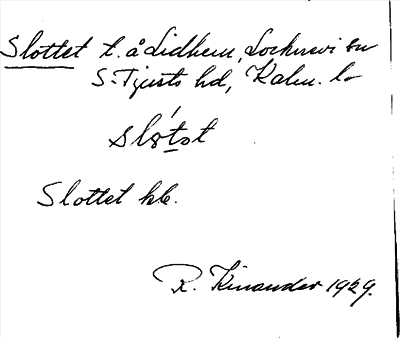 Slottet t. å Lidhem, Locknevi sn
S. Tjusts hd, Kalm. l.
slòtət
Slottet kb.
R. Kinander 1929.